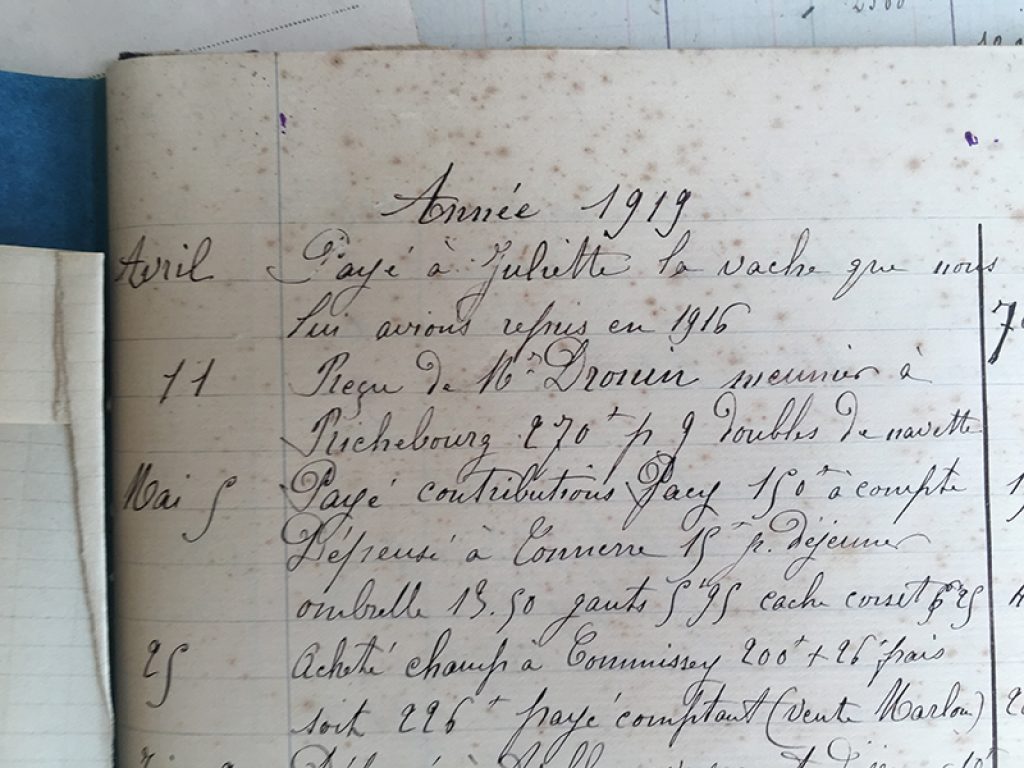 Année 1919
Avril Payé à Juliette la vache que nous
lui avions repris en 1916 7
11 Reçu de Mr Drouin meunier à
Richebourg 270f p 9 doubles de navette
Mai 5 Payé contributions Pacy 150f à compte
Dépensé à Tonnerre 15f p. déjeuner
ombrelle 13.50 gants 5f95 cache corset 6f25
25 Acheté champ à Commissey 200f + 26f frais
soit 226f payé comptant (vente Marlou) 2